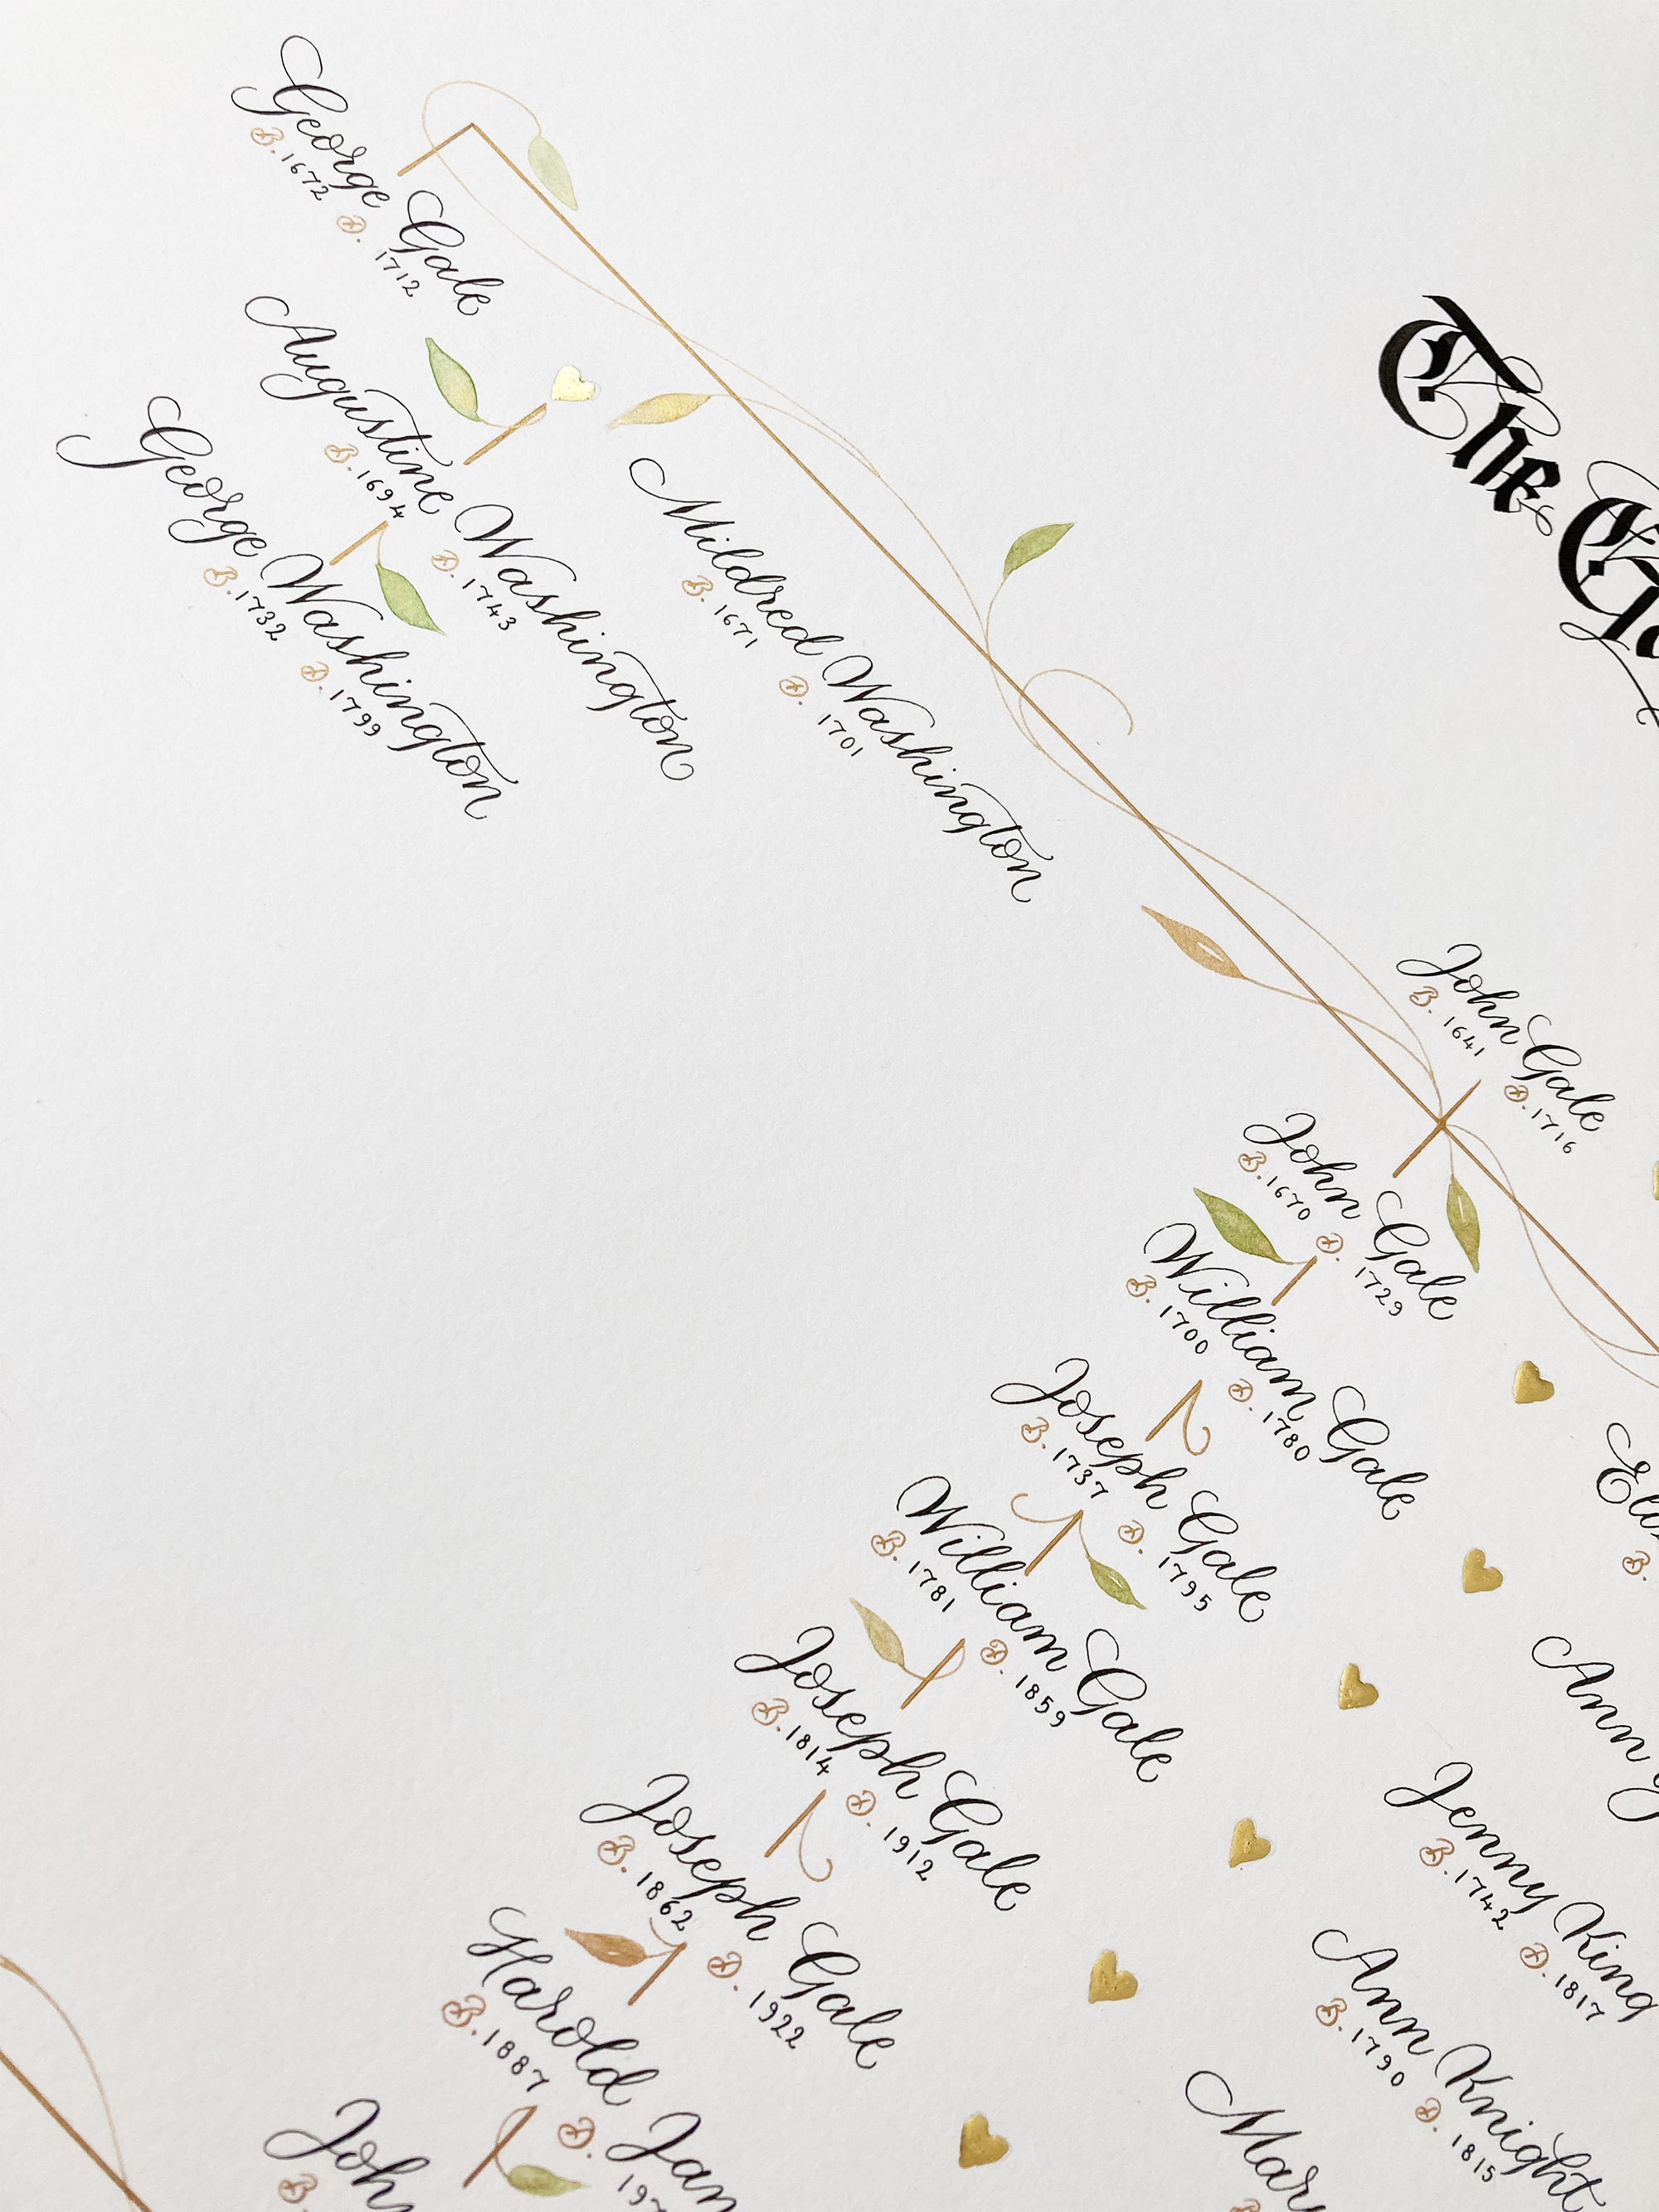 The
George Gale
B. 1672 D. 1712
Augustine Washington
B. 1694 D. 1743
Mildred Washington
B. 1671 D. 1701
George Washington
B. 1732 D. 1799
John Gale
B. 1641 D. 1716
John Gale
B. 1670 D. 1729
William Gale
B. 1700 D. 1780
Joseph Gale
B. 1737 D. 1795
Ann
William Gale
B. 1781 D. 1859
Jenny King
B. 1742 D. 1817
Joseph Gale
B. 1814 D. 1912
Ann Knight
B. 1790 D. 1815
Joseph Gale
B. 1862 D. 1922
Harold
B. 1887 D.